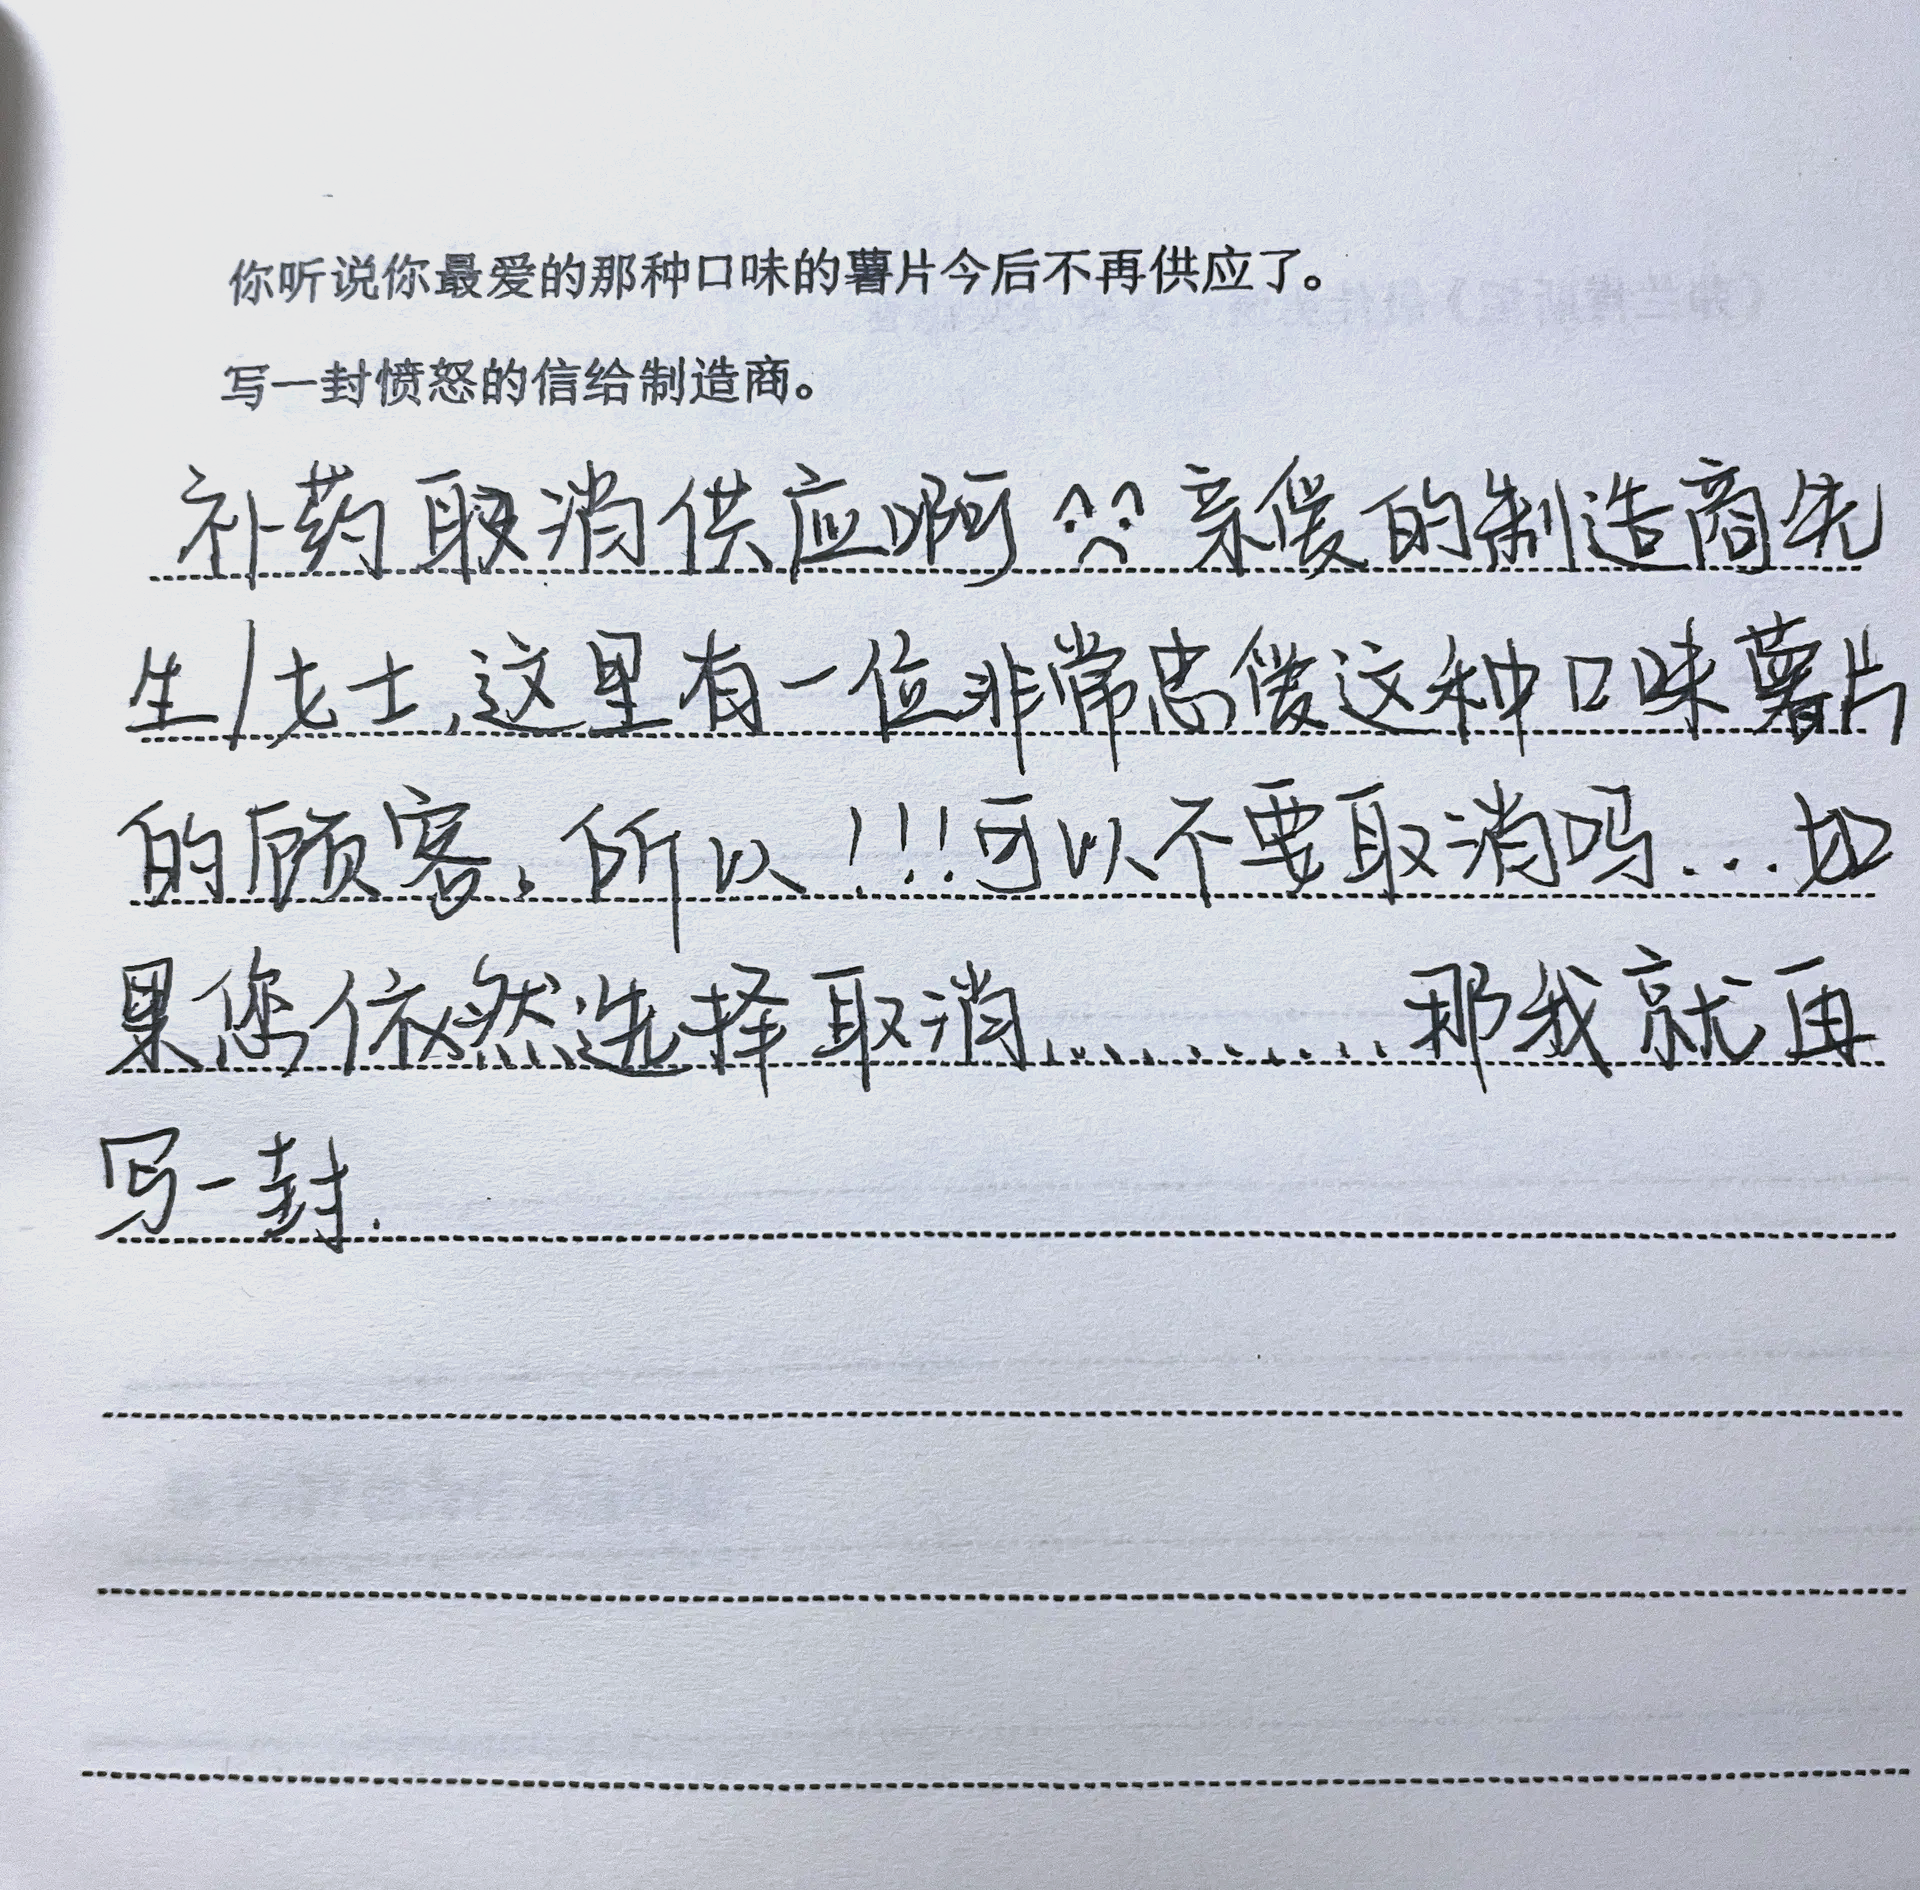 你听说你最爱的那种口味的薯片今后不再供应了。
写一封愤怒的信给制造商。
补药取消供应啊 亲爱的制造商先
生/女士,这里有一位非常忠爱这种口味薯片
的顾客,所以!!!可以不要取消吗...如
果您依然选择取消..........那我就再
写一封.